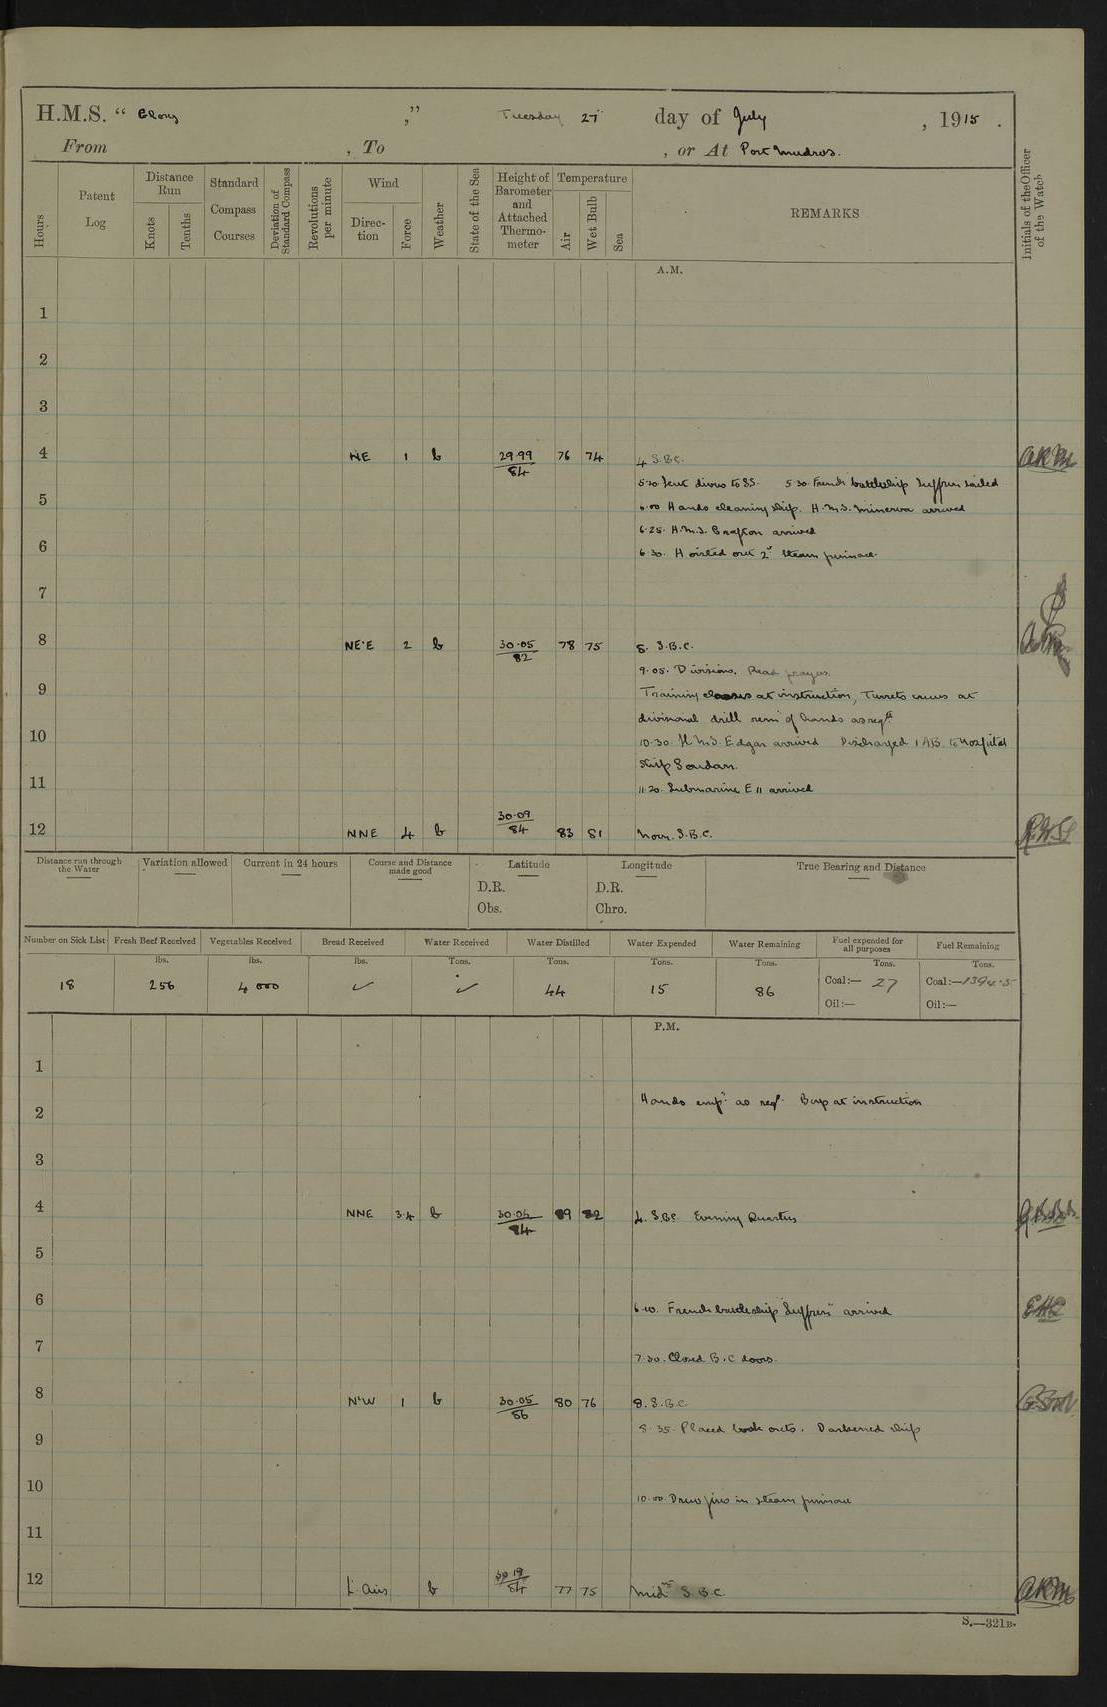 H.M.S. “ Glory ,” Tuesday 27 day of July , 1915 .
From , To , or At Port Mudros.
Hours
Patent Log
Distance Run
Knots
Tenths
Standard Compass Courses
Deviation of Standard Compass
Revolutions per minute
Wind
Direction
Force
Weather
State of the Sea
Height of Barometer and Attached Thermometer
Temperature
Air
Wet Bulb
Sea
REMARKS
Initials of the Officer of the Watch
A.M.
1
2
3
4 NE 1 b 29.99/84 76 74 4 S.B.C.
5.20 Sent divers to SS. 5.30. French battleship Suffren sailed
5 6.00 Hands cleaning ship. H.M.S. Minerva arrived
6.25. H.M.S. Grafton arrived
6 6.30. Hoisted out 2d steam pinnace.
7
8 NE'E 2 b 30.05/82 78 75 8. S.B.C.
9.05. Divisions. Read prayers.
9 Training classes at instruction, Turrets crews at
divisional drill rem of hands as reqd
10 10.30. H.M.S. Edgar arrived Discharged 1 AB to Hospital
Ship Soudan.
11 11.20. Submarine E 11 arrived
12 NNE 4 b 30.09/84 83 81 Noon. S.B.C.
Distance run through the Water
Variation allowed
Current in 24 hours
Course and Distance made good
Latitude
D.R.
Obs.
Longitude
D.R.
Chro.
True Bearing and Distance
Number on Sick List Fresh Beef Received Vegetables Received Bread Received Water Received Water Distilled Water Expended Water Remaining Fuel expended for all purposes Fuel Remaining
lbs. lbs. lbs. Tons. Tons. Tons. Tons. Tons. Tons.
18 256 4000 ✓ ✓ 44 15 86 Coal:— 27 Coal:—
Oil:— Oil:—
P.M.
1
Hands empd as reqd. Boys at instruction
2
3
4 NNE 3.4 b 84 89 82 4. S.B.C. Evening Quarters
5
6 6.10. French battleship "Suffren" arrived
7 7.30. Closed B.C doors.
8 N'W 1 b 30.05/86 80 76 8. S.B.C.
8.35. Placed look outs. Darkened ship
9
10 10.00. Drew fires in steam pinnace
11
12 Lt Airs b 84 77 75 Midt S.B.C
S.—321B.